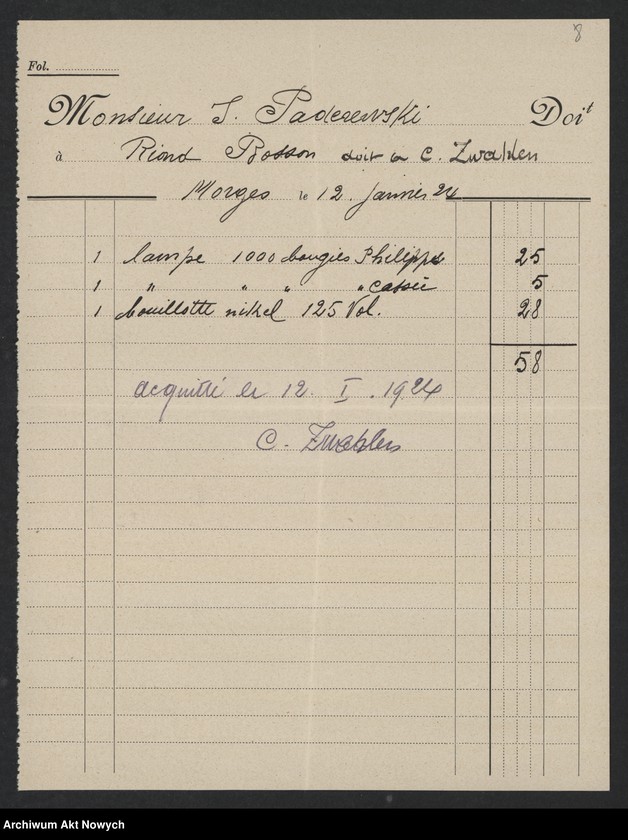 8
Fol.
Monsieur I. Paderewski Doit
à Riond Bosson doit à C. Zwahlen
Morges le 12. janvier 24
1 lampe 1000 bougies Philipps 25
1 " " " " cassée 5
1 bouillotte nikel 125 Vol. 28
58
acquitté le 12. I. 1924
C. Zwahlen
Archiwum Akt Nowych